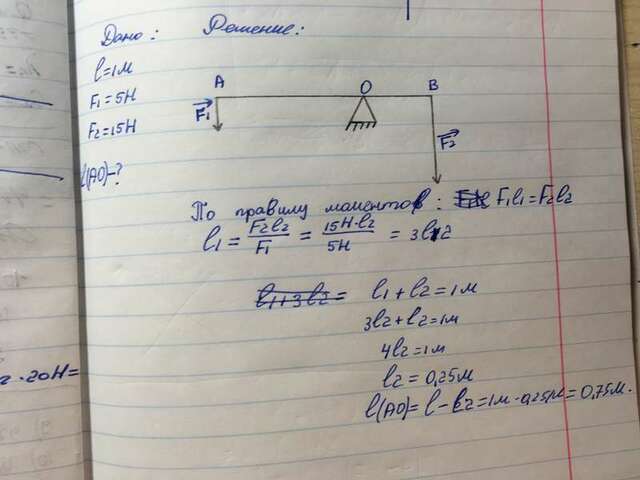 Дано:
l=1м
F₁=5Н
F₂=15Н
l(AO)-?
Решение:
A O B
F₁ F₂
По правилу моментов: F₁l₁=F₂l₂
l₁ = F₂l₂/F₁ = 15Н·l₂/5Н = 3l₂
l₁+3l₂= l₁+l₂=1м
3l₂+l₂=1м
4l₂=1м
l₂=0,25м
l(AO)=l-l₂=1м-0,25м=0,75м.
·20Н=